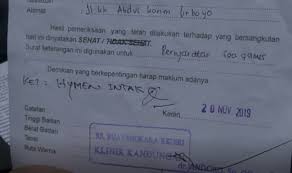 Alamat : Jl. KH Abdul Karim Lirboyo
Hasil pemeriksaan yang telah dilakukan terhadap yang bersangkutan
hari ini dinyatakan SEHAT / TIDAK SEHAT.
Surat keterangan ini digunakan untuk : Persyaratan Sea games
Demikian yang berkepentingan harap maklum adanya
KET : HYMEN INTAK
Kediri, 20 NOV 2019
Catatan
Tinggi Badan
Berat Badan
Tensi
Buta Warna
RS. BHAYANGKARA KEDIRI
KLINIK KANDUNGAN